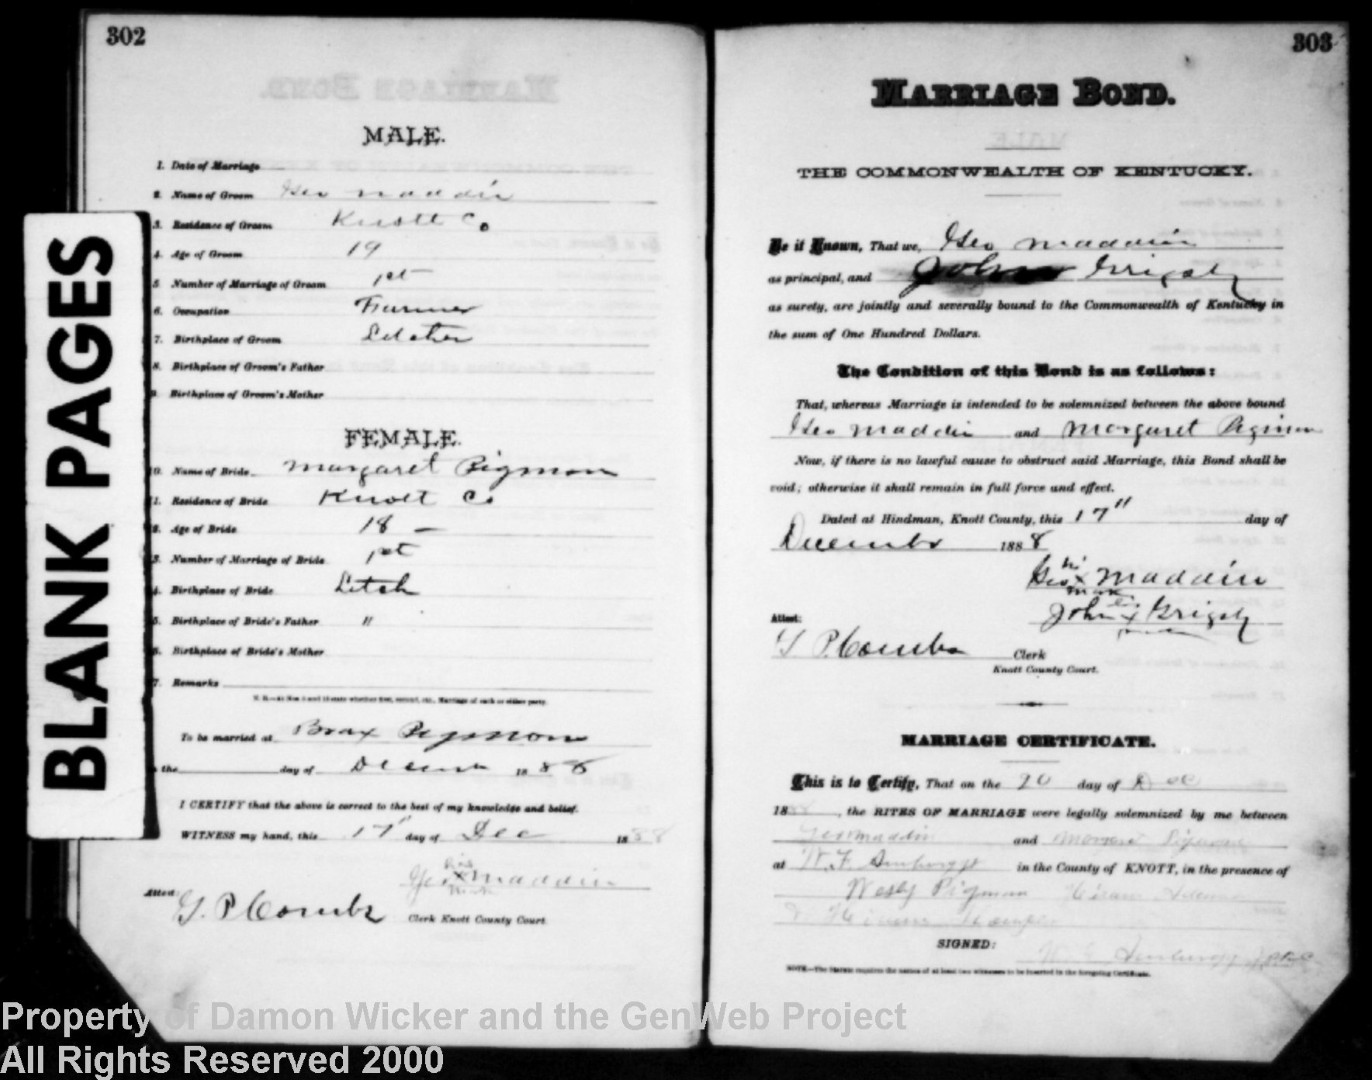 302
MALE.
1. Date of Marriage
2. Name of Groom Geo Maddin
3. Residence of Groom Knott Co
4. Age of Groom 19
5. Number of Marriage of Groom 1st
6. Occupation Farmer
7. Birthplace of Groom Letcher
8. Birthplace of Groom's Father
9. Birthplace of Groom's Mother
FEMALE.
10. Name of Bride Margaret Pigmon
1. Residence of Bride Knott Co
2. Age of Bride 18 —
3. Number of Marriage of Bride 1st
4. Birthplace of Bride Letch
5. Birthplace of Bride's Father "
6. Birthplace of Bride's Mother
7. Remarks
To be married at Brax Pigmon
the day of December 1888
I CERTIFY that the above is correct to the best of my knowledge and belief.
WITNESS my hand, this 17" day of Dec 1888
his
Geo x Maddin
mark
Attest:
G. P. Combs Clerk Knott County Court.
303
MARRIAGE BOND.
THE COMMONWEALTH OF KENTUCKY.
Be it Known, That we, Geo Maddin
as principal, and John Grigsby
as surety, are jointly and severally bound to the Commonwealth of Kentucky in
the sum of One Hundred Dollars.
The Condition of this Bond is as follows:
That, whereas Marriage is intended to be solemnized between the above bound
Geo Maddin and Margaret Pigmon
Now, if there is no lawful cause to obstruct said Marriage, this Bond shall be
void; otherwise it shall remain in full force and effect.
Dated at Hindman, Knott County, this 17" day of
December 1888
his
Geo x Maddin
mark
his
John x Grigsby
mark
Attest:
G P. Combs Clerk
Knott County Court.
MARRIAGE CERTIFICATE.
This is to Certify, That on the 20 day of Dec
1888, the RITES OF MARRIAGE were legally solemnized by me between
Geo Maddin and Margaret Pigmon
at in the County of KNOTT, in the presence of
Wesly Pigman Hiram
SIGNED:
NOTE.—The Statute requires the names of at least two witnesses to be inserted in the foregoing Certificate.
BLANK PAGES
Property of Damon Wicker and the GenWeb Project
All Rights Reserved 2000